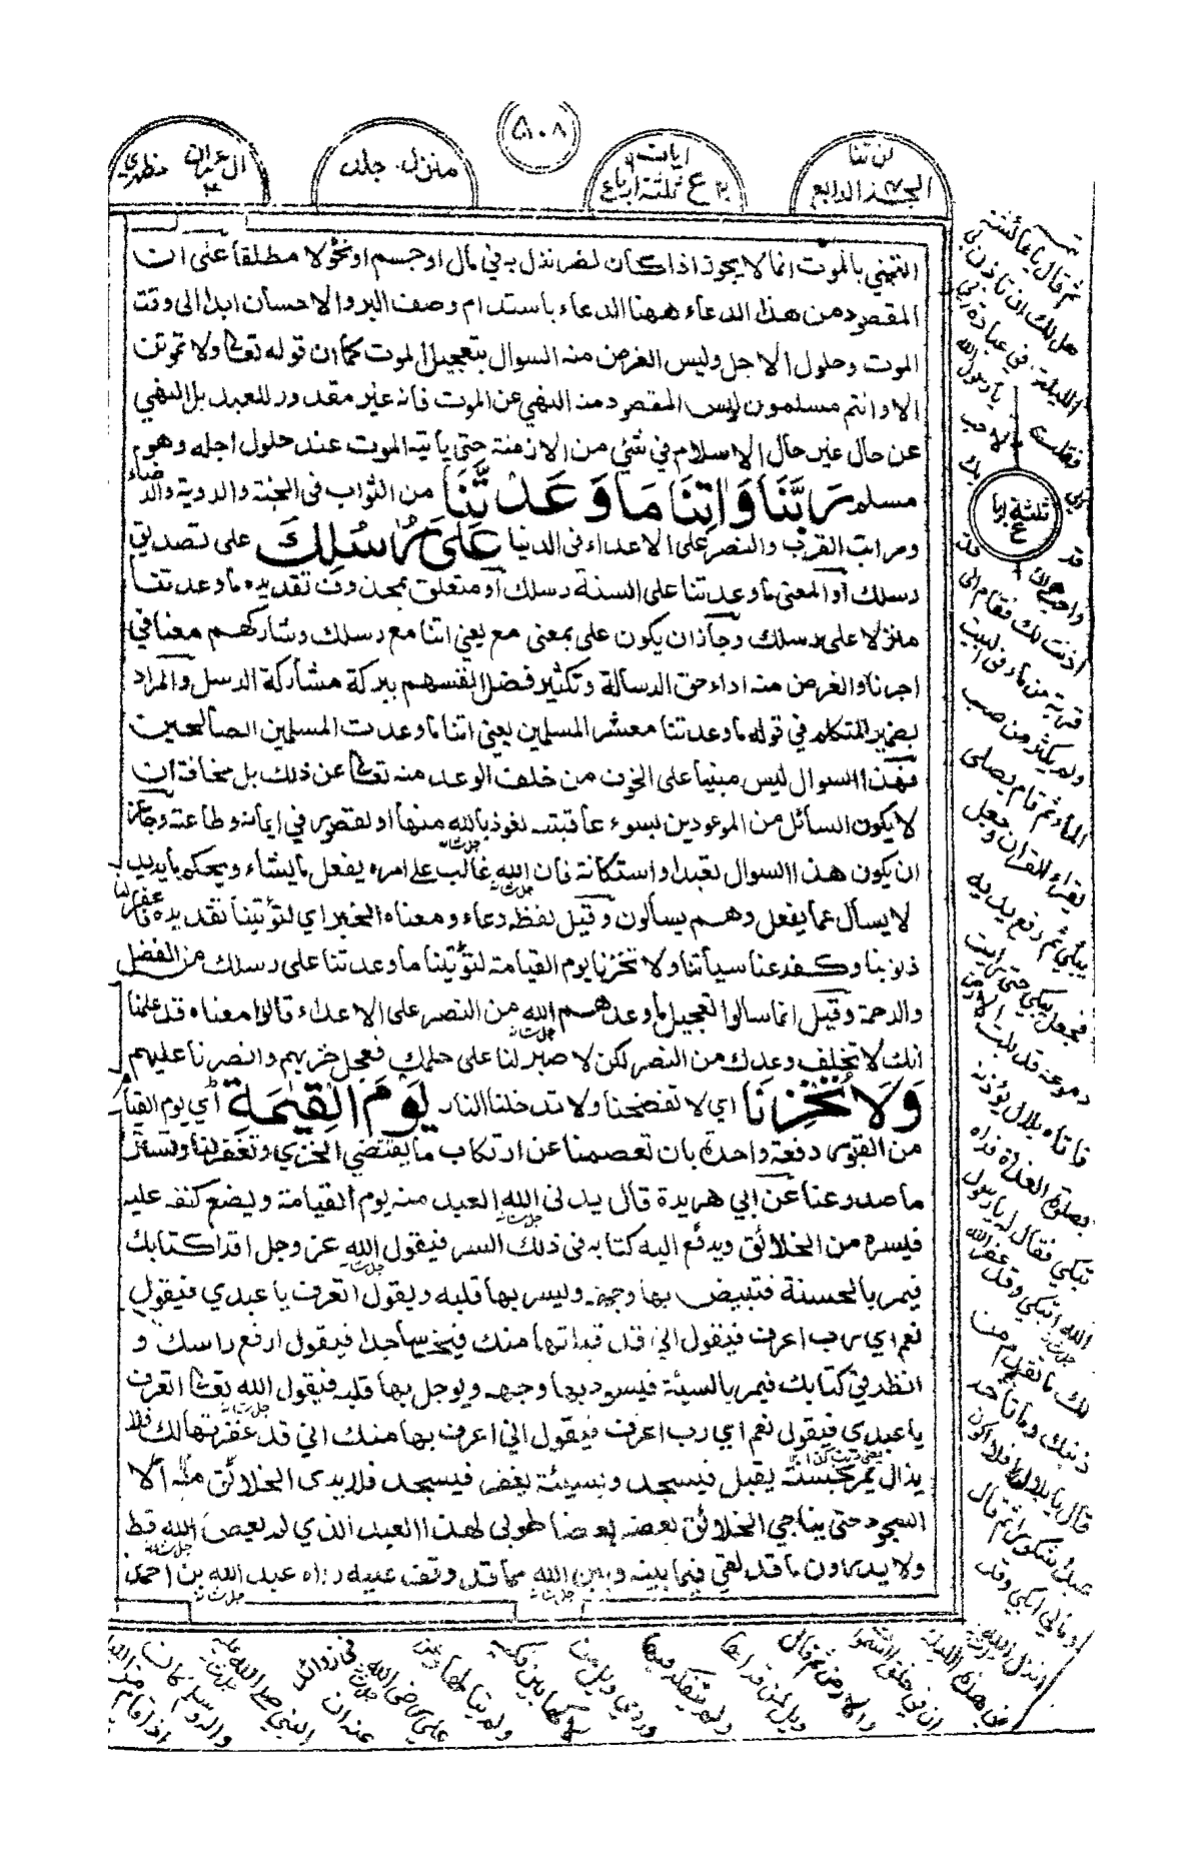 ٥٠٨
لن تنا
الجزء الرابع
ايات
ع ثلثة ارباع
منزل جلد
ال عمران مظهري
التمني بالموت انما لا يجوز اذا كان لضر نزل به في مال او جسم او نحو لا مطلقا على ان
المقصود من هذا الدعاء ههنا الدعاء باستدام وصف البر والاحسان ابدا الى وقت
الموت وحلول الاجل وليس الغرض منه السوال بتعجيل الموت كما ان قوله تعالى ولا تموتن
الا وانتم مسلمون ليس المقصود منه النهي عن الموت فانه غير مقدور للعبد بل النهي
عن حال غير حال الاسلام في شئي من الازمنة حتى ياتيه الموت عند حلول اجله وهو
مسلم رَبَّنَا وَاٰتِنَا مَا وَعَدْتَّنَا من الثواب في الجنة والروية والرضاء
ومراتب القرب والنصر على الاعداء في الدنيا عَلٰى رُسُلِكَ على تصديق
رسلك او المعنى ما وعدتنا على السنة رسلك او متعلق بمحذوف تقديره ما وعدتنا
منزلا على رسلك وجاز ان يكون على بمعنى مع يعني اتنا مع رسلك وشاركهم معنا في
اجرنا والغرض منه اداء حق الرسالة وتكثير فضل انفسهم ببركة مشاركة الرسل والمراد
بضمير المتكلم في قوله ما وعدتنا معشر المسلمين يعني اتنا ما وعدت المسلمين الصالحين
فهذا السوال ليس مبنيا على الخوف من خلف الوعد منه تعالى عن ذلك بل مخافة ان
لا يكون السائل من الموعودين بسوء عاقبته نعوذ بالله منها او لقصور في ايمانه وطاعته وجاز
ان يكون هذا السوال تعبدا واستكانة فان الله غالب على امره يفعل ما يشاء ويحكم ما يريد
لا يسأل عما يفعل وهم يسألون وقيل لفظه دعاء ومعناه الخبر اي لتؤتينا تقديره فاغفر لنا
ذنوبنا وكفر عنا سيأتنا ولا تخزنا يوم القيامة لتؤتينا ما وعدتنا على رسلك من الفضل
والرحمة وقيل انما سالوا تعجيل ما وعدهم الله من النصر على الاعداء قالوا معناه قد علمنا
انك لا تخلف وعدك من النصر لكن لا صبر لنا على حلمك فعجل خزيهم وانصرنا عليهم
وَلَا تُخْزِنَا اي لا تفضحنا ولا تدخلنا النار يَوْمَ الْقِيٰمَةِ اي يوم القيا
من القبور دفعة واحدة بان تعصمنا عن ارتكاب ما يقتضي الخزي وتغفر لنا وتستر
ما صدر عنا عن ابي هريرة قال يدني الله العبد منه يوم القيامة ويضع كنفه عليه
فيستره من الخلائق ويدفع اليه كتابه في ذلك الستر فيقول الله عز وجل اقرا كتابك
فيمر بالحسنة فتبيض بها وجهه ويسر بها قلبه ويقول اتعرف يا عبدي فيقول
نعم اي رب اعرف فيقول اني قد قبلتها منك فيخر ساجدا فيقول ارفع راسك و
انظر في كتابك فيمر بالسيئة فيسود بها وجهه ويوجل بها قلبه فيقول الله تعالى اتعرف
يا عبدي فيقول نعم اي رب اعرف فيقول اني اعرف بها منك اني قد غفرتها لك فلا
يزال يمر بحسنة يقبل فيسجد وبسيئة يغفر فيسجد فلا يرى الخلائق منه الا
السجود حتى يناجي الخلائق بعضه بعضا طوبى لهذا العبد الذي لم يعص الله قط
ولا يدرون ما قد لقي فيما بينه وبين الله مما قد وقف عليه رواه عبد الله بن احمد
ثم قال يا عائشة
هل لك ان تاذن لي
الليلة في عبادة ربي
فقلت يا رسول الله
قد اذنت لك فقام الى
قربة من ماء في البيت
ولم يكثر من صب
الماء ثم قام يصلي
يقراء القران وجعل
يبكي ثم رفع يديه
فجعل يبكي حتى رايت
دموعه قد بلت الارض
فاتاه بلال يؤذنه
بصلوة الغداة فراه
يبكي فقال له يا رسول
الله اتبكي وقد غفر الله
لك ما تقدم من
ذنبك وما تأخر
قال يا بلال افلا اكون
عبدا شكورا ثم قال
وما لي لا ابكي وقد
انزل الله
في هذه الليلة
ان في خلق السموات
والارض ثم قال
ويل لمن قراها
ولم يتفكر فيها